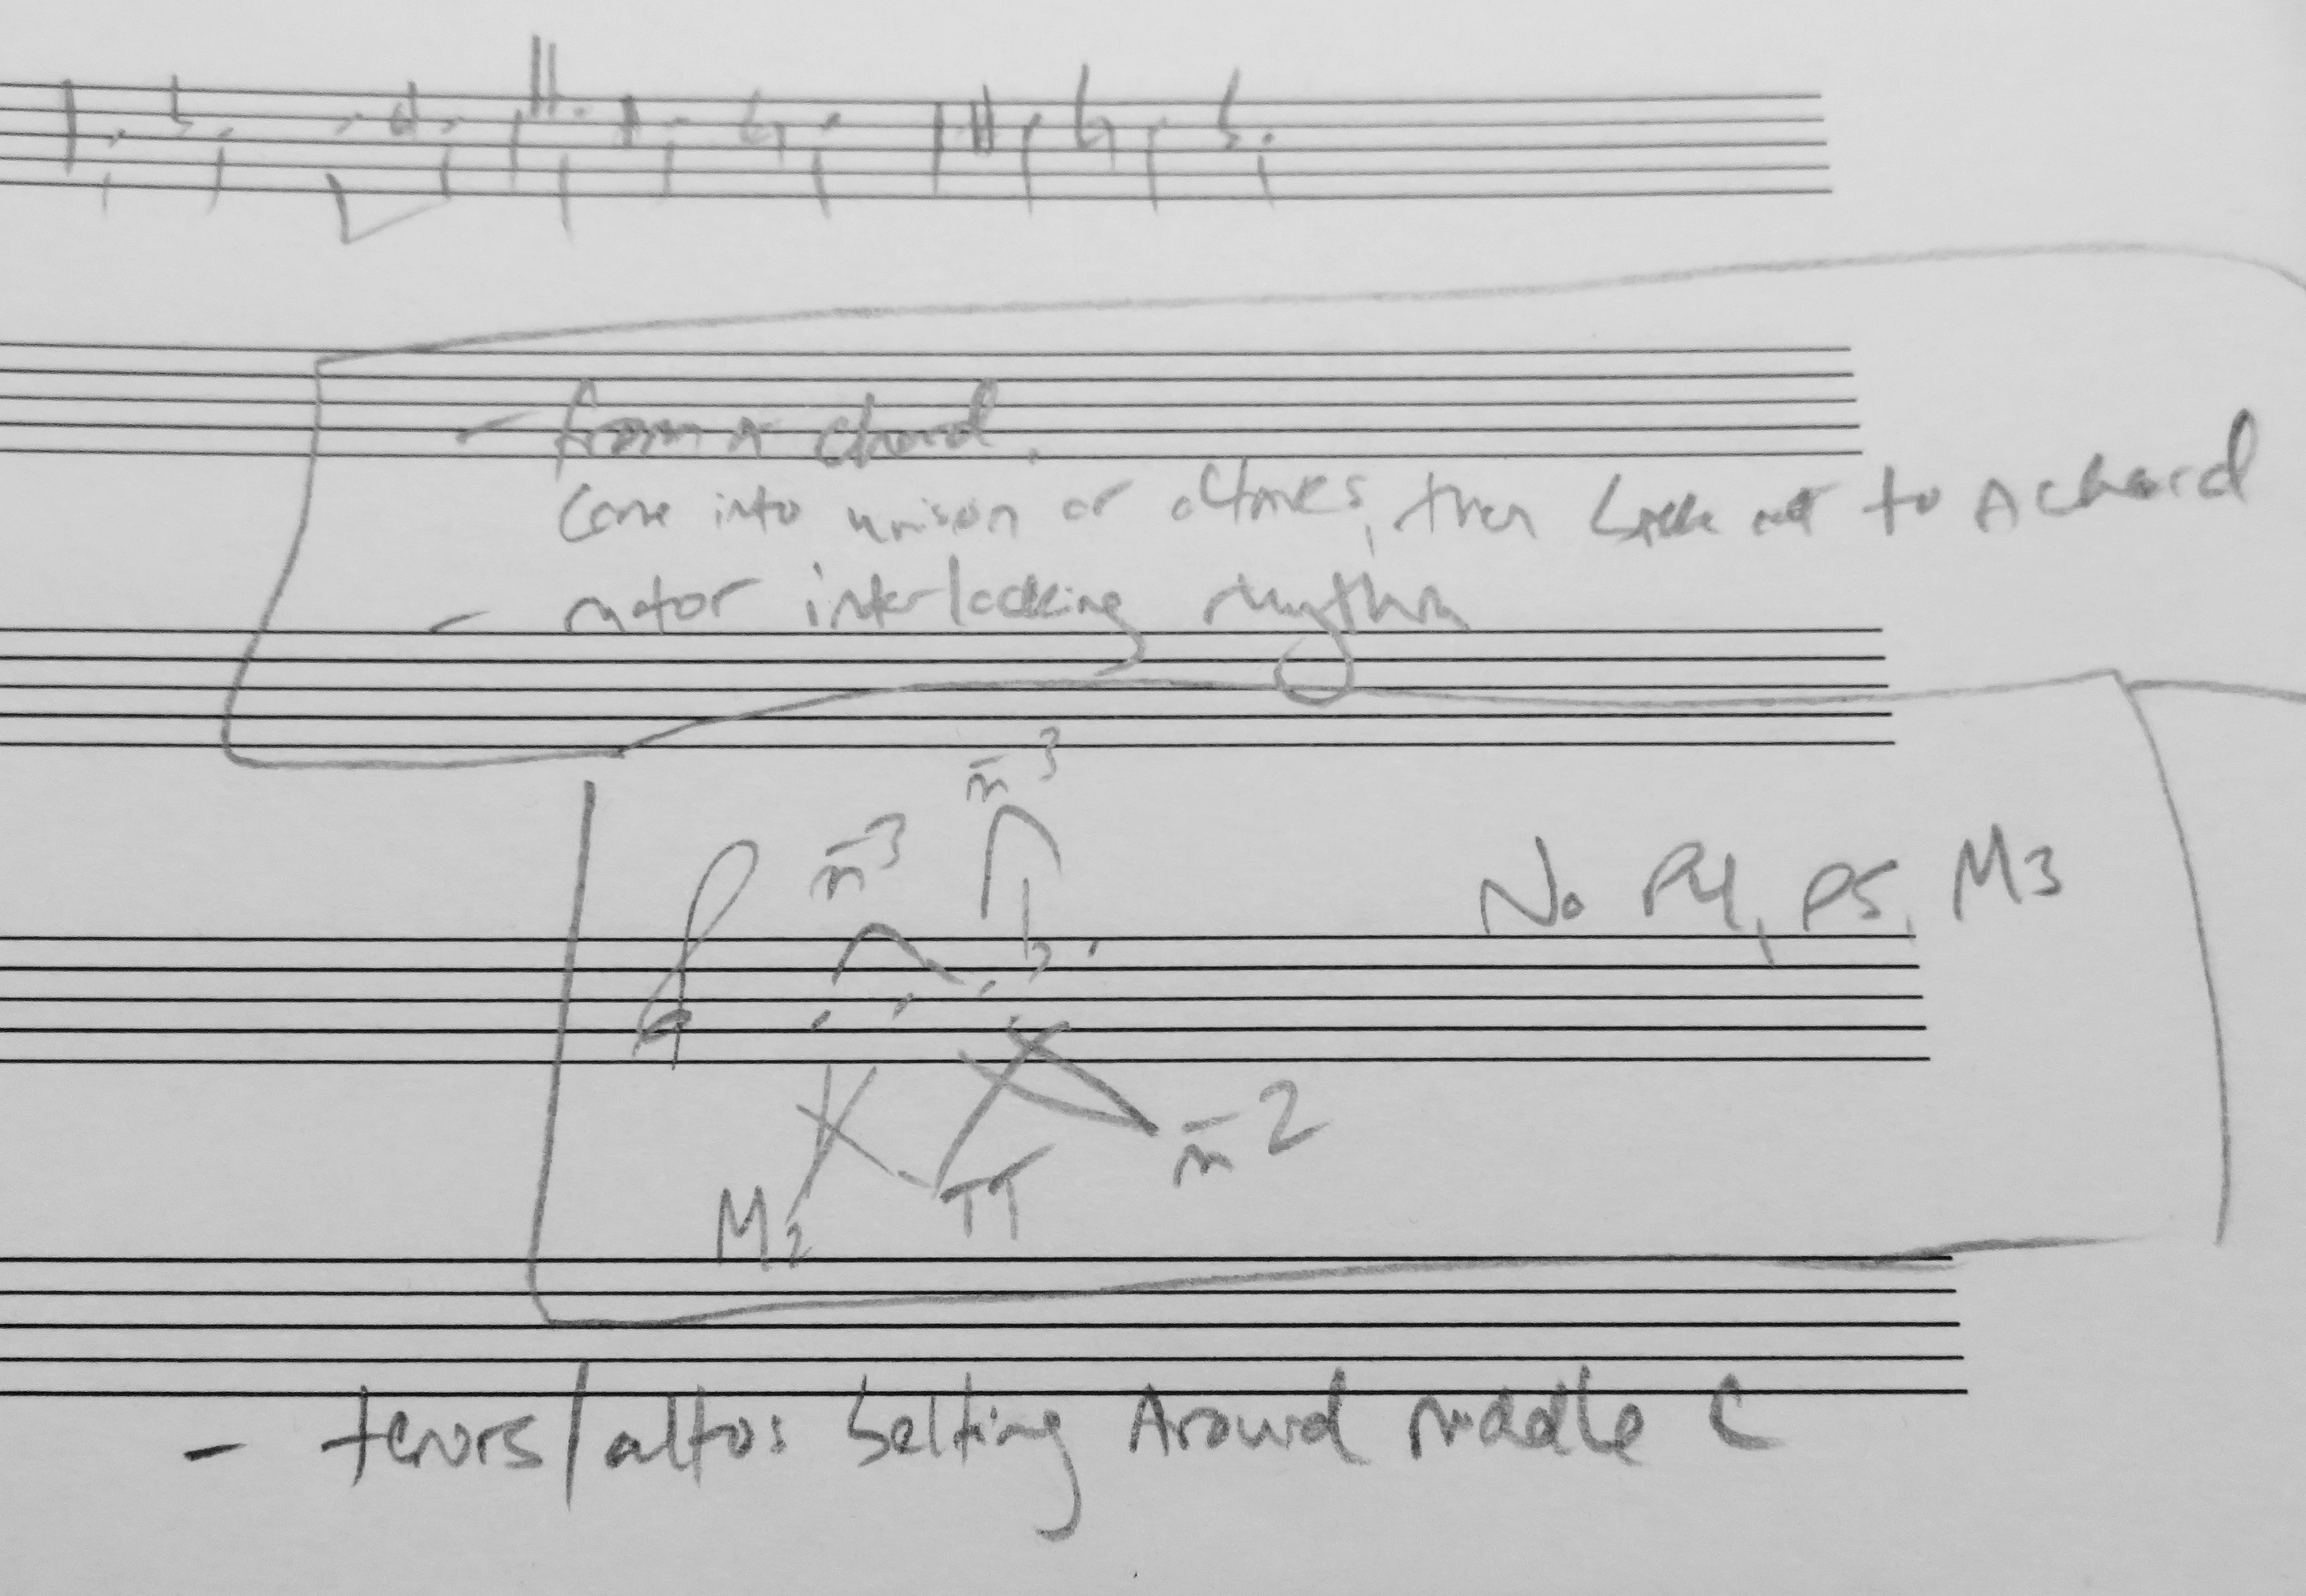 - from a chord.
come into unison or octaves, then break out to A chord
- motor interlocking rhythm
m̄3
m̄3
No P4, P5, M3
m̄2
M2
TT
- tenors/altos belting Around middle C